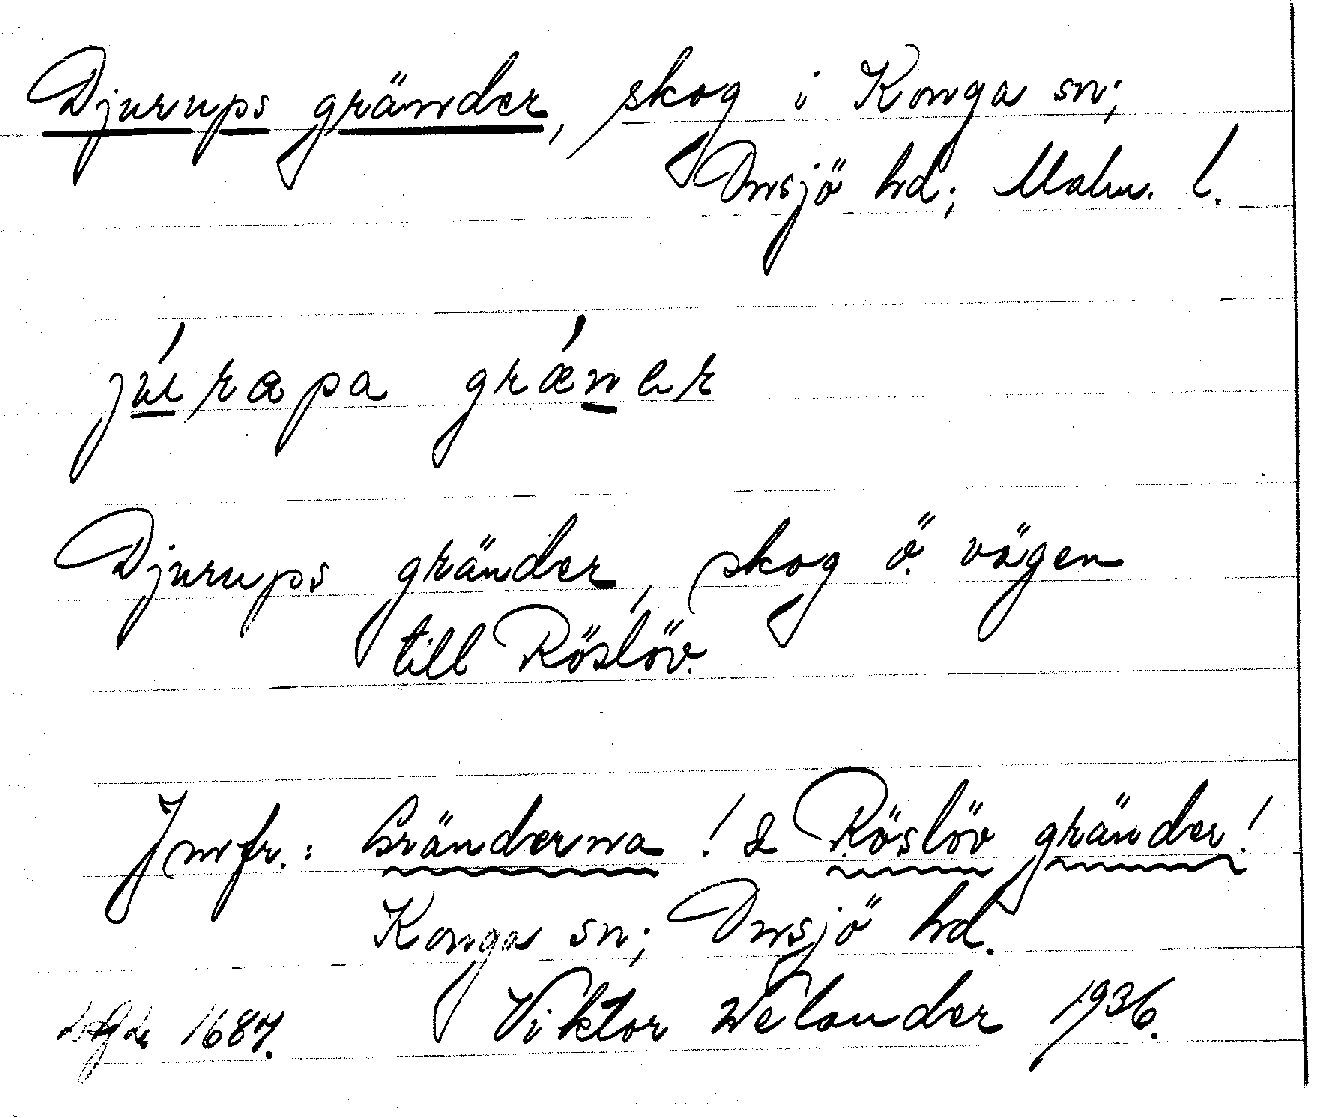 Djurups gränder, skog i Konga sn;
Onsjö hd; Malm. l.
júrapa grǽner
Djurups gränder, skog ö. vägen
till Röslöv.
Jmfr.: Gränderna! & Röslöv gränder!
Konga sn; Onsjö hd.
1687. Viktor Welander 1936.